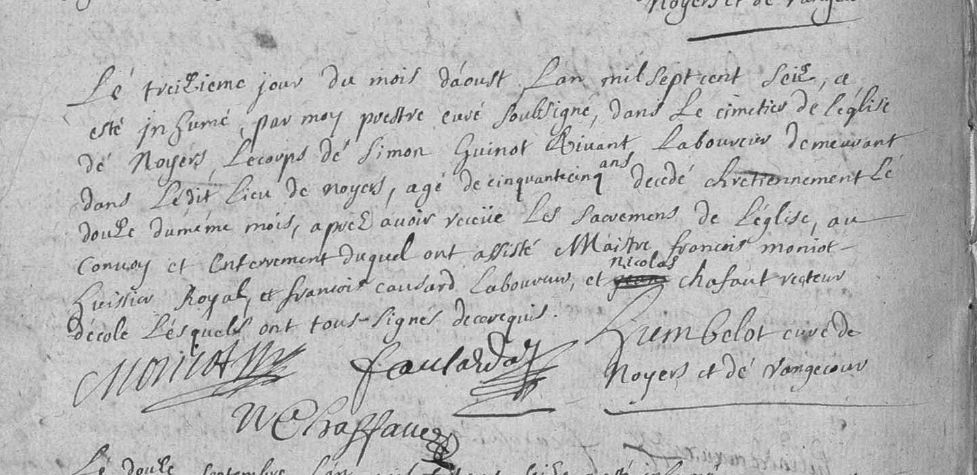 Noyers et de Vangecour
Le treizieme jour du mois d'aoust l'an mil sept cent seize, a
esté inhumé, par moy prestre curé soubsigné, dans le cimetier de l'église
de Noyers, le corps de Simon Guinot vivant, Laboureur demeurant
dans Ledit Lieu de noyers, agé de cinquante cinq ans decedé chretiennement Le
douze du méme mois, aprez avoir receüe Les Sacremens de L'église, au
Convoy et Enterrement duquel ont assisté Maistre françois moniot
huissier Royal, et françois causard Laboureur, et Nicolas chafaut recteur
decole Lésquels ont tous Signes de ce requis.
Moniot
f causard
Humbelot curé de
Noyers et dé Vangecour
N Chaffaut
Lé douze septembre Lan